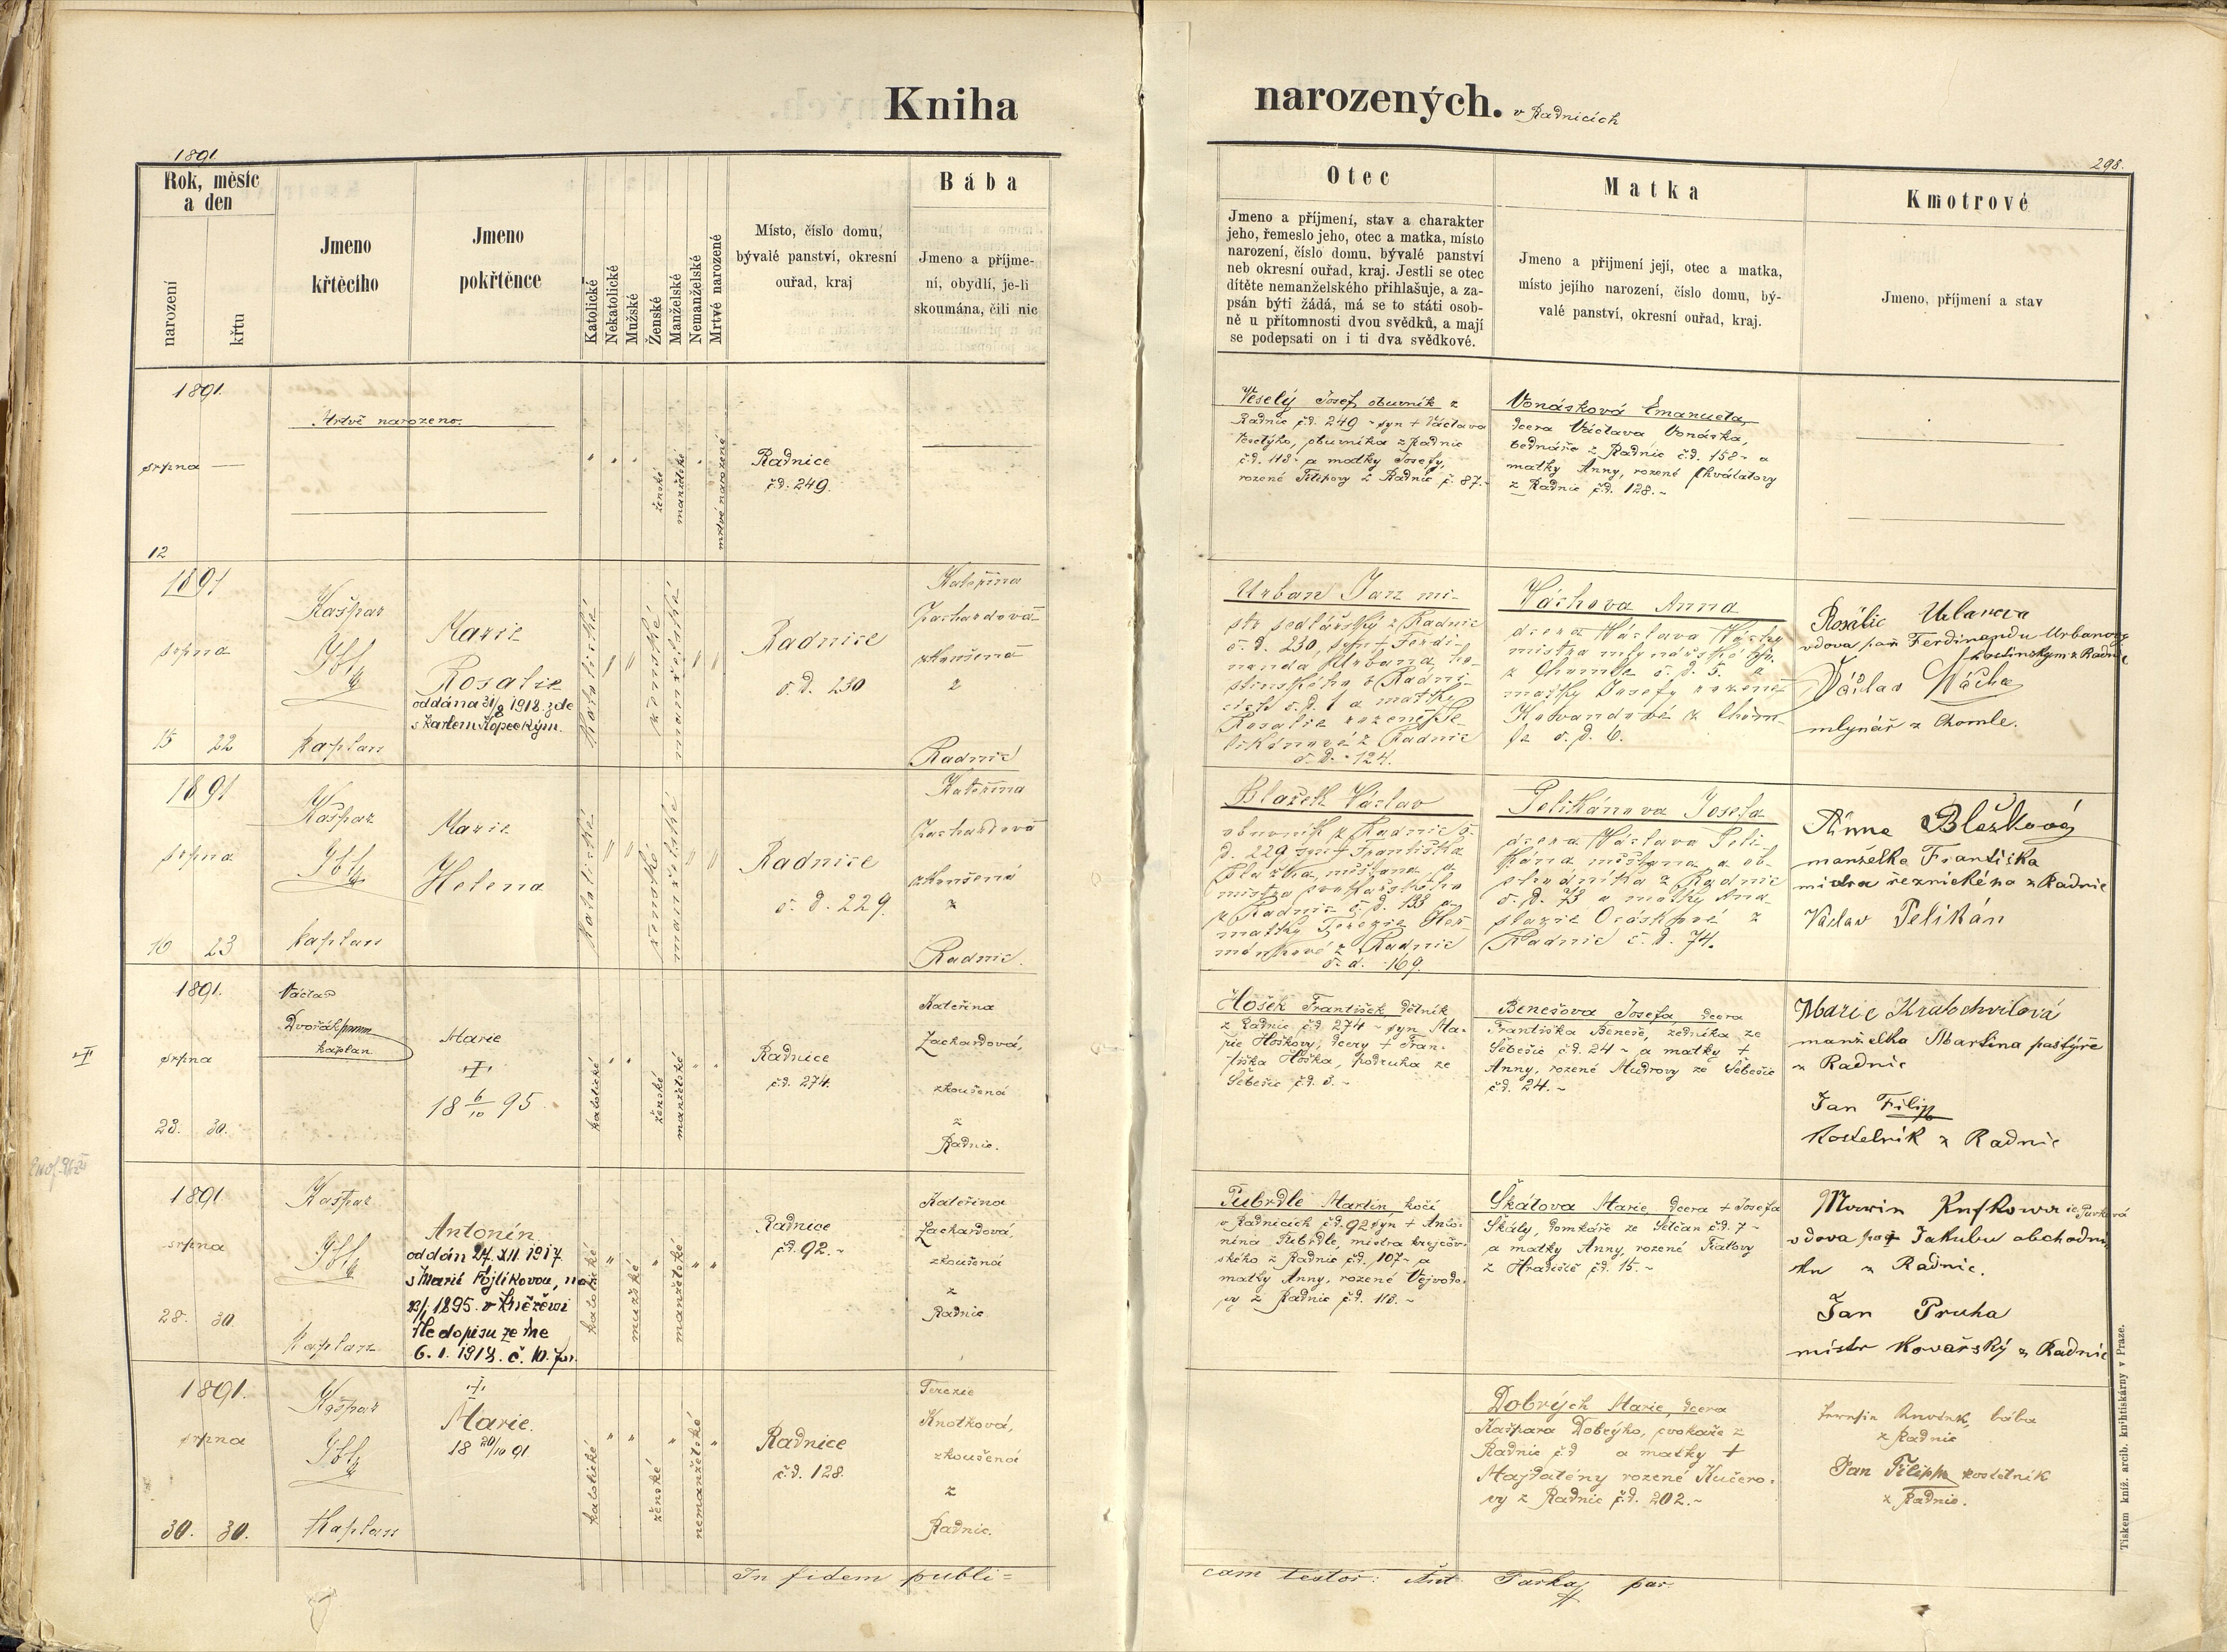 Kniha
narozených. v Radnicích
1891
298.
Rok, měsíc
a den
narození
křtu
Jmeno
křtěcího
Jmeno
pokřtěnce
Katolické
Nekatolické
Mužské
Ženské
Manželské
Nemanželské
Mrtvé narozené
Místo, číslo domu,
bývalé panství, okresní
ouřad, kraj
Bába
Jmeno a příjme-
ní, obydlí, je-li
skoumána, čili nic
Otec
Jmeno a příjmení, stav a charakter
jeho, řemeslo jeho, otec a matka, místo
narození, číslo domu, bývalé panství
neb okresní ouřad, kraj. Jestli se otec
dítěte nemanželského přihlašuje, a za-
psán býti žádá, má se to státi osob-
ně u přítomnosti dvou svědků, a mají
se podepsati on i ti dva svědkové.
Matka
Jmeno a příjmení její, otec a matka,
místo jejího narození, číslo domu, bý-
valé panství, okresní ouřad, kraj.
Kmotrové
Jmeno, příjmení a stav
1891.
srpna
12
Mrtvě narozeno.
ženské
manželské
mrtvé narozené
Radnice
čd. 249.
Veselý Josef, obuvník z
Radnic čd. 249 - syn + Václava
Veselýho, obuvníka z Radnic
čd. 113 - a matky Josefy,
rozené Filipovy z Radnic č. 87.-
Vonásková Emanuela,
dcera Václava Vonáska,
bednáře z Radnic čd. 158 - a
matky Anny, rozené Chválalovy
z Radnic čd. 128.-
1891
srpna
15 22
Kašpar
Kaplan
Marie
Rosalie
oddána 31/8 1918. zde
s Karlem Kopeckým.
Katolické
ženské
manželské
Radnice
č. d. 230
Kateřina
Zachardová
zkoušená
z
Radnic
Urban Jan mi-
str sedlářský z Radnic
č. d. 230, syn + Ferdi-
nanda Urbana, ho-
stinského v Radni-
cích č. d. 1 a matky
Rosalie rozené Pe-
likánové z Radnic
č. d. 124.
Váchova Anna
dcera Václava Váchy
mistra mlynářského
z Chomle č. d. 5. a
matky Josefy rozené
z Chom-
le č. d. 6.
Rosálie Urbanova
vdova po Ferdinandu Urbanovy
hostinským z Radnic
Václav Vácha
mlynář z Chomle.
1891
srpna
16 23
Kašpar
kaplan
Marie
Helena
Katolické
ženské
manželské
Radnice
č. d. 229.
Kateřina
Zachardová
zkoušená
z
Radnic.
Blažek Václav
obuvník z Radnic č.
d. 229 syn + Františka
Blažka, měšťana a
mistra provaznického
z Radnic č. d. 133 a
matky Terezie Heř-
mánkové z Radnic
č. d. 169.
Pelikánova Josefa
dcera Václava Peli-
kána měšťana a ob-
chodníka z Radnic
č. d. 73 a matky Ana-
stazie z
Radnic č. d. 74.
Anna Blažková
manželka Františka
mistra řeznického z Radnic
Václav Pelikán
1891.
srpna
23. 30.
Václav
Dvořák
kaplan
Marie
18 6/10 95.
katolické
ženské
manželské
Radnice
čd. 274.
Kateřina
Zachardová,
zkoušená
z
Radnic.
Hošek František dělník
z Radnic čd. 274 - syn Ma-
rie Hoškovy, dcery + Fran-
tiška Hoška, podruha ze
Sebečic čd. 3.-
Benešova Josefa, dcera
Františka Beneše, zedníka ze
Sebečic čd. 24 - a matky +
Anny, rozené Mudrovy ze Sebečic
čd. 24.-
Marie Krabohvilová
manželka Martina pastýře
z Radnic
Jan Filip
Kostelník z Radnic
1891
srpna
28. 30.
Kašpar
Kaplan
Antonín.
oddán 27. XII 1917
s Marií Fojtíkovou, na
23/1. 1895. v Kněževsi
dle dopisu ze dne
6. 1. 1918. č. 10.
katolické
mužské
manželské
Radnice
čd. 92.-
Kateřina
Zachardová,
zkoušená
z
Radnic
Pubrdle Martin, kočí
v Radnicích čd. 92 syn + Anto-
nína Pubrdle, mistra krejčov-
ského z Radnic čd. 107 - a
matky Anny, rozené Vejvodo-
vy z Radnic čd. 118.-
Škálova Marie, dcera + Josefa
Škály, domkáře ze Selčan čd. 7 -
a matky Anny, rozené Fialovy
z Hradiště čd. 15.-
vdova po + Jakubu obchodní-
ku z Radnic.
Jan Pruha
mistr kovařský z Radnic
1891.
srpna
30. 30.
Kašpar
Kaplan
Marie.
18 20/10 91
katolické
ženské
nemanželské
Radnice
čd. 128.
Terezie
Knotková,
zkoušená
z
Radnic.
Dobrých Marie, dcera
Kašpara Dobrýho, cvokaře z
Radnic čd a matky +
Majdalény rozené Kučero-
vy z Radnic čd. 202.-
bába
z Radnic
Jan Filipp kostelník
z Radnic.
In fidem publi=
cam testor: Ant. par.
Tiskem kníž. arcib. knihtiskárny v Praze.